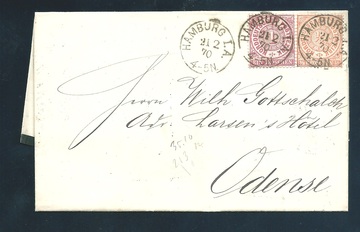 HAMBURG I.A.
21 2
70
4-5N
HAMBURG I.A.
21 2
70
4-5N
HAMBURG I.A.
21 2
70
4-5N
Herrn Wilh Gottschalch
Adr. Larsen's Hôtel
Odense